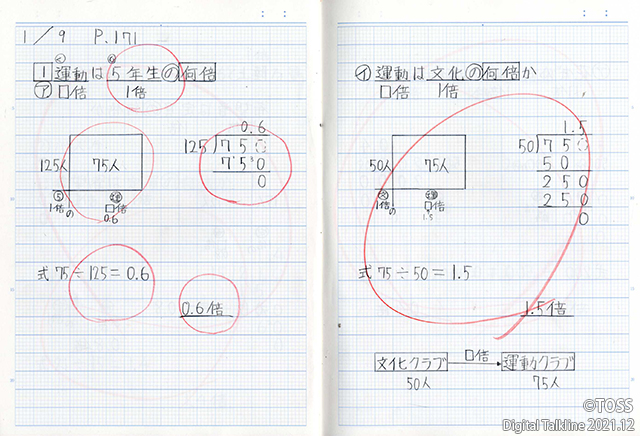 1/9 P.171
1 運動は5年生の何倍
ア □倍 1倍
0.6
125)750
125人 75人
750
0
1倍の □倍
0.6
式 75÷125=0.6
0.6倍
イ 運動は文化の何倍か
□倍 1倍
1.5
50)750
50人 75人
50
250
250
0
1倍の □倍
1.5
式 75÷50=1.5
1.5倍
文化クラブ □倍 運動クラブ
50人 75人
©TOSS
Digital Talkline 2021.12